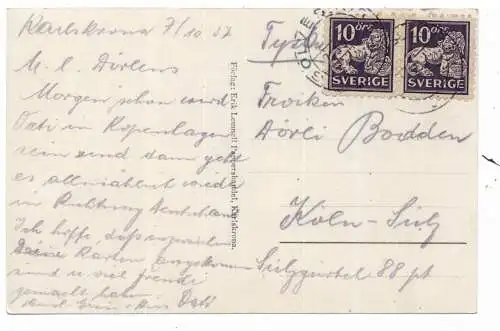 Karlskrona 7/10 37
M. l. Dörlens
Morgen schon wird
Vati in Kopenhagen
sein und dann geht
es allmählich wieder
in Richtung Deutschland
Ich hoffe, dass inzwischen
Deine Karten angekommen
sind u. viel Freude
gemacht haben.
Vati
Förlag: Erik Lennett Pappershandel, Karlskrona.
10 ÖRE
SVERIGE
10 ÖRE
SVERIGE
Tyskland
Fräulein
Dörli Bodden
Köln-Sülz
Sülzgürtel 88 pt